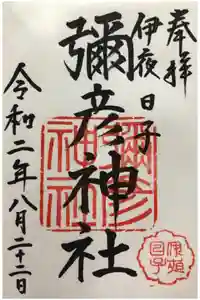 奉拝
伊夜日子
彌彦神社
令和二年八月二十二日
彌彦
神社